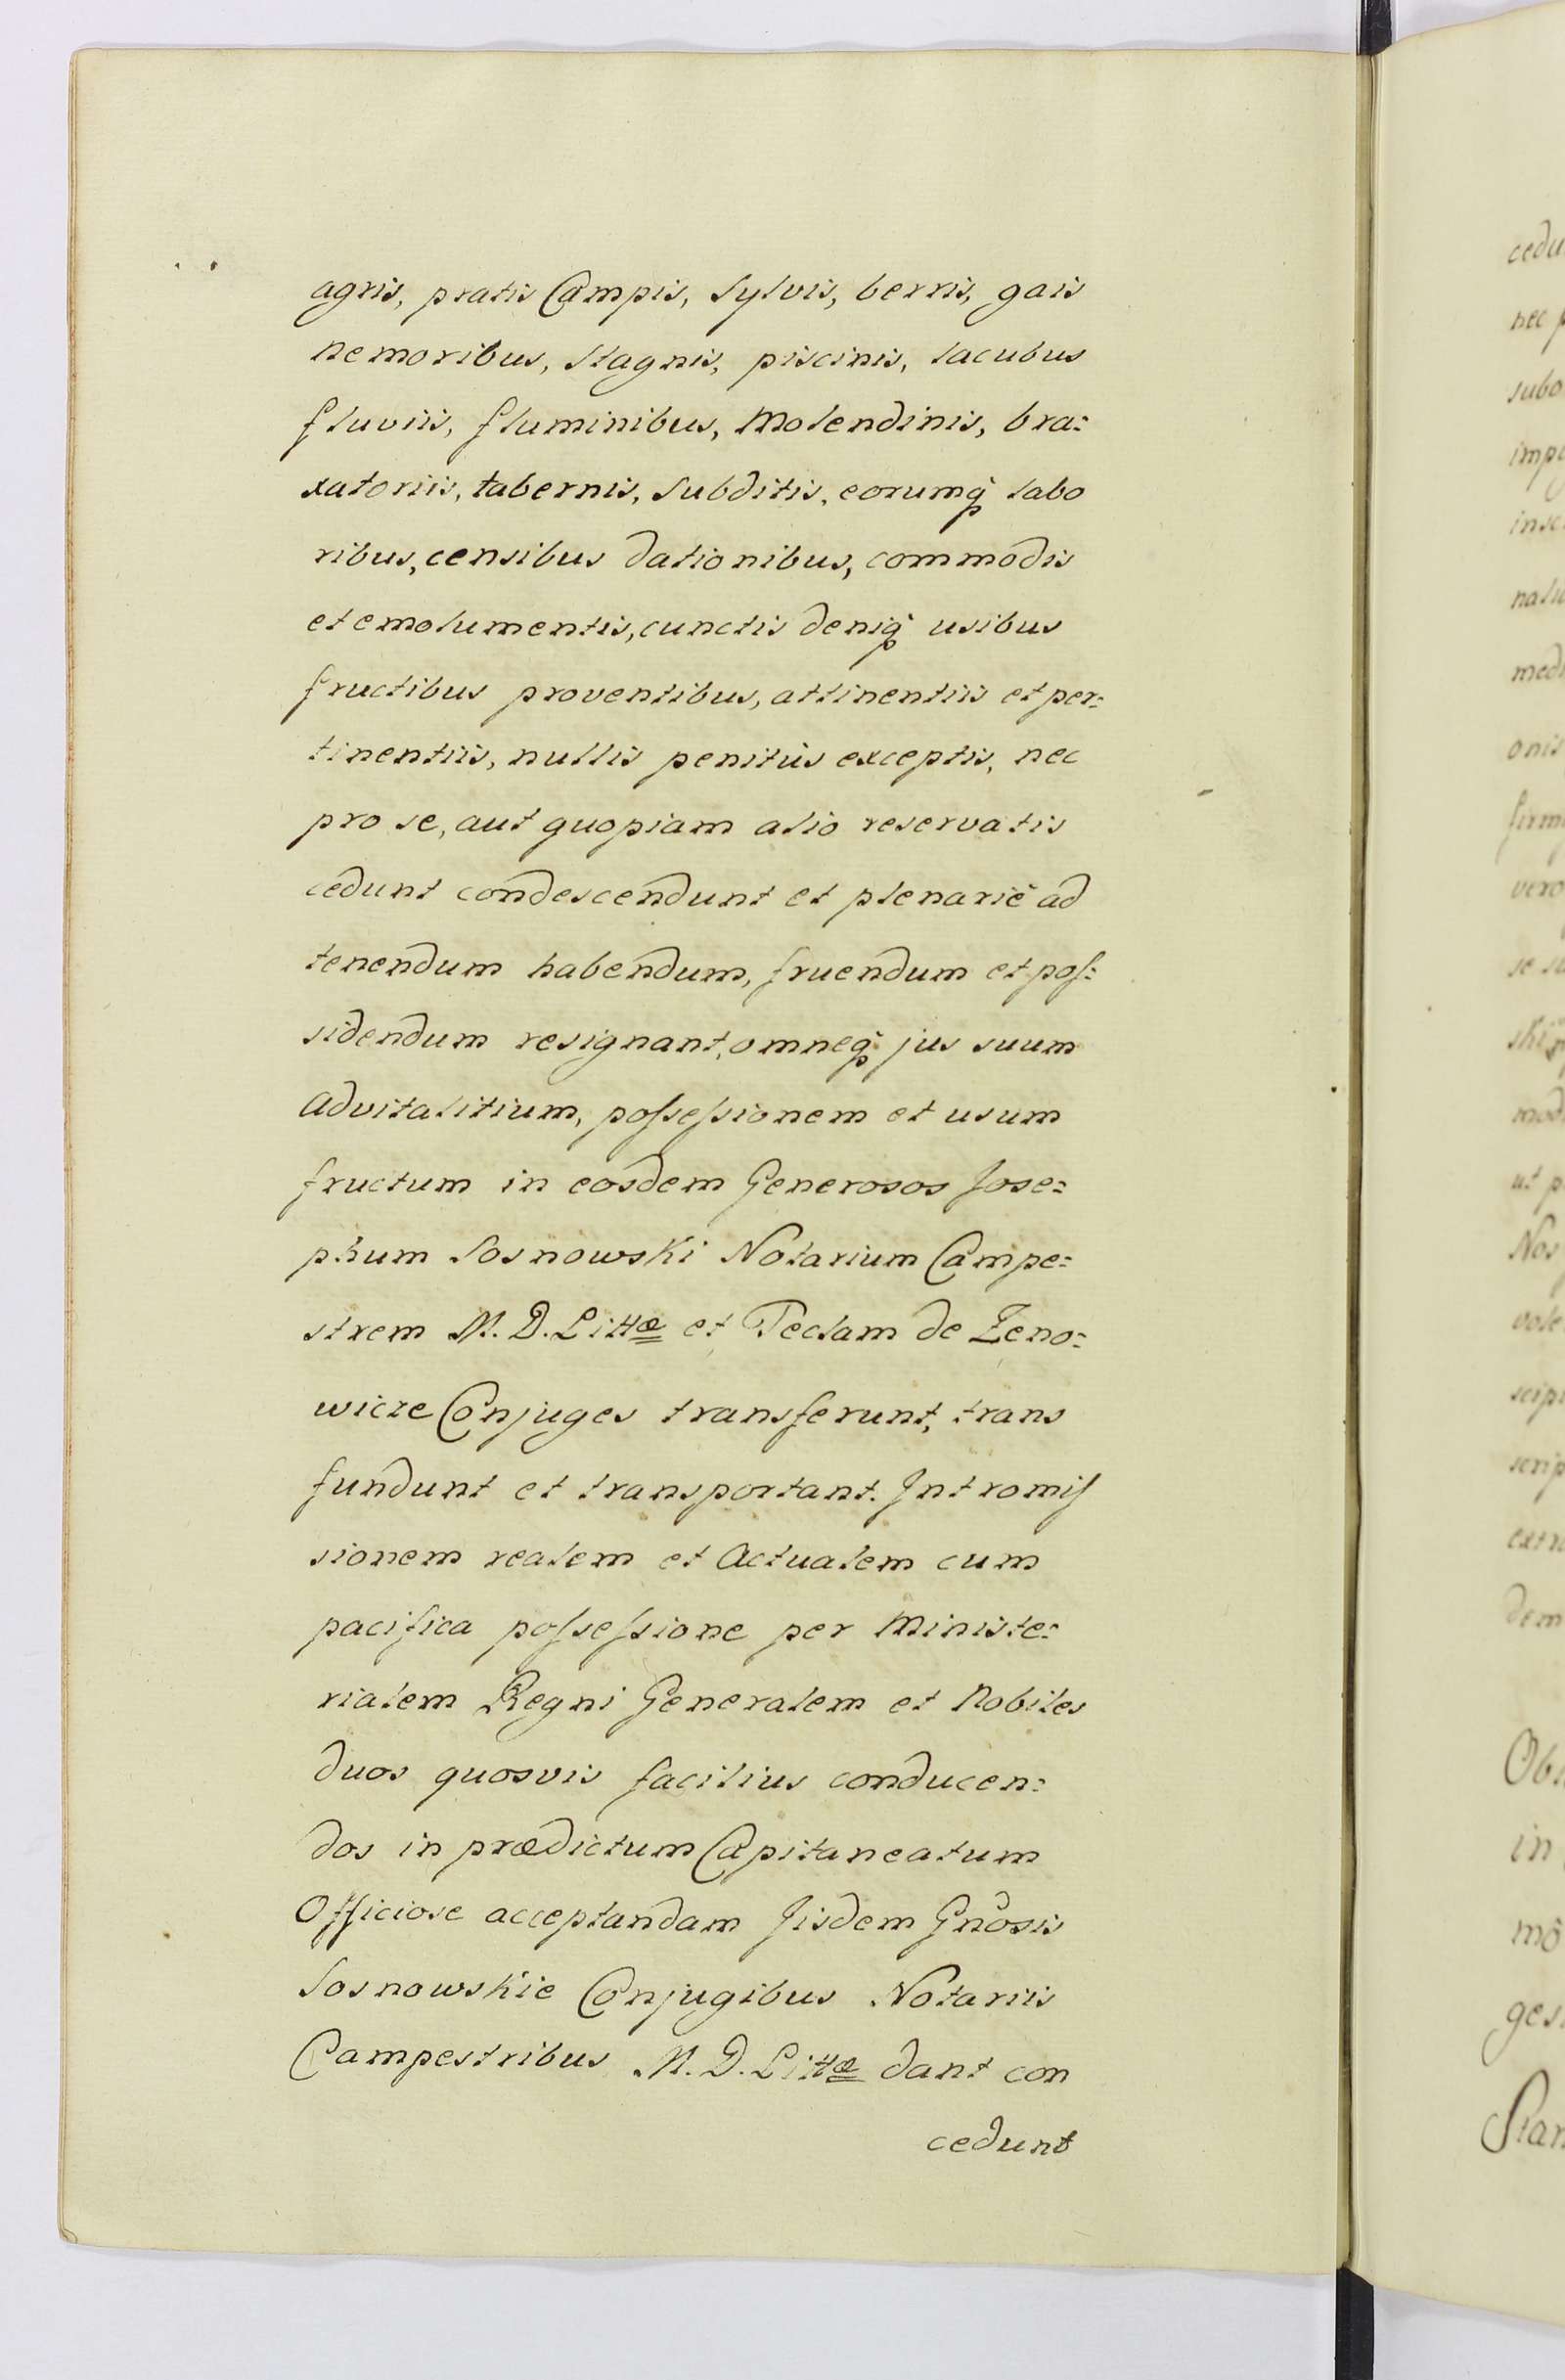 agris, pratis Campis, Sylvis, berris, gais
nemoribus, Stagnis, piscinis, lacubus
fluviis, fluminibus, Molendinis, bra=
xatoriis, tabernis, Subditis, eorumq̀ labo
ribus, censibus dationibus, commodis
et emolumentis, cunctis deniq̀ usibus
fructibus proventibus, attinentiis et per=
tinentiis, nullis penitùs exceptis, nec
pro se, aut quopiam alio reservatis
cedunt condescendunt et plenariè ad
tenendum habendum, fruendum et pos=
sidendum resignant, omneq̀ jus suum
advitalitium, possessionem et usum
fructum in eosdem Generosos Jose=
phum Sosnowski Notarium Campe=
strem M. D. Littæ et Teclam de Zeno=
wicze Conjuges transferunt, trans
fundunt et transportant. Intromis
sionem realem et Actualem cum
pacifica possessione per Ministe=
rialem Regni Generalem et Nobiles
duos quosvis facilius conducen=
dos in prædictum Capitaneatum
Officiose acceptandam Jisdem Gnosis
Sosnowskie Conjugibus Notariis
Campestribus M. D. Littæ dant con
cedunt
cedu
nec p
subo
imp
inse
natu
medi
onis
firm
vero
se su
ski
mod
ut p
Nos
vole
scip
scrip
extr
dem
Obl
in
mô
ges
Stan